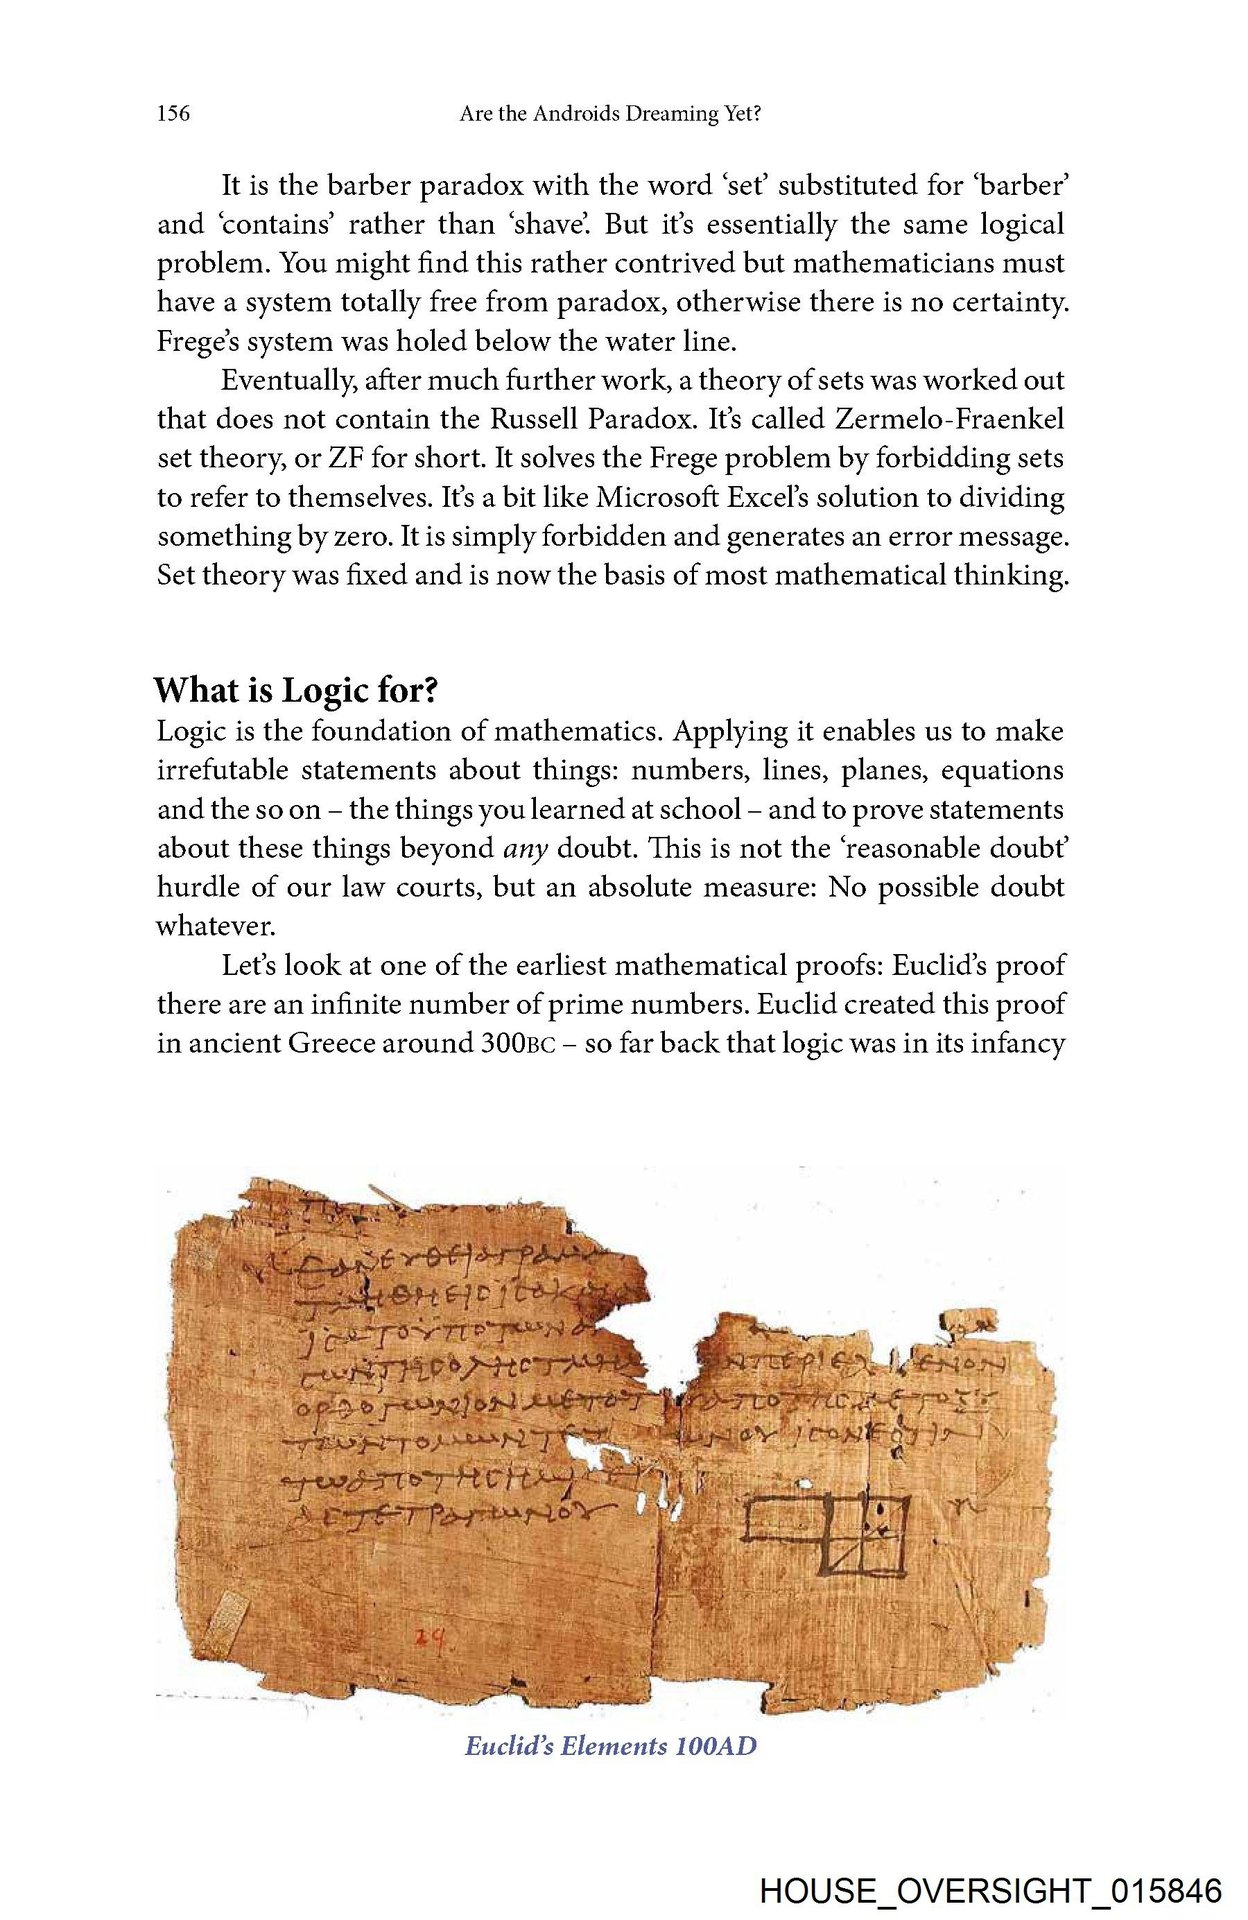 156
Are the Androids Dreaming Yet?
It is the barber paradox with the word ‘set’ substituted for ‘barber’
and ‘contains’ rather than ‘shave’. But it’s essentially the same logical
problem. You might find this rather contrived but mathematicians must
have a system totally free from paradox, otherwise there is no certainty.
Frege’s system was holed below the water line.
Eventually, after much further work, a theory of sets was worked out
that does not contain the Russell Paradox. It’s called Zermelo-Fraenkel
set theory, or ZF for short. It solves the Frege problem by forbidding sets
to refer to themselves. It’s a bit like Microsoft Excel’s solution to dividing
something by zero. It is simply forbidden and generates an error message.
Set theory was fixed and is now the basis of most mathematical thinking.
What is Logic for?
Logic is the foundation of mathematics. Applying it enables us to make
irrefutable statements about things: numbers, lines, planes, equations
and the so on – the things you learned at school – and to prove statements
about these things beyond any doubt. This is not the ‘reasonable doubt’
hurdle of our law courts, but an absolute measure: No possible doubt
whatever.
Let’s look at one of the earliest mathematical proofs: Euclid’s proof
there are an infinite number of prime numbers. Euclid created this proof
in ancient Greece around 300BC – so far back that logic was in its infancy
29
Euclid’s Elements 100AD
HOUSE_OVERSIGHT_015846